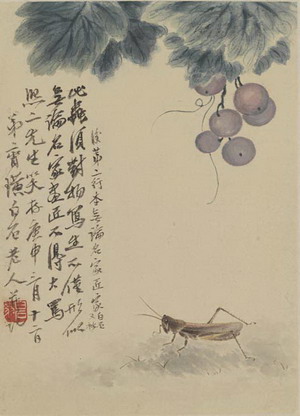 後第二行本無論名家匠家白石又
此蟲須對物寫生不僅形似
無論名家畫匠不得大罵
熙二先生笑存庚申三月十二日
弟齊璜白石老人